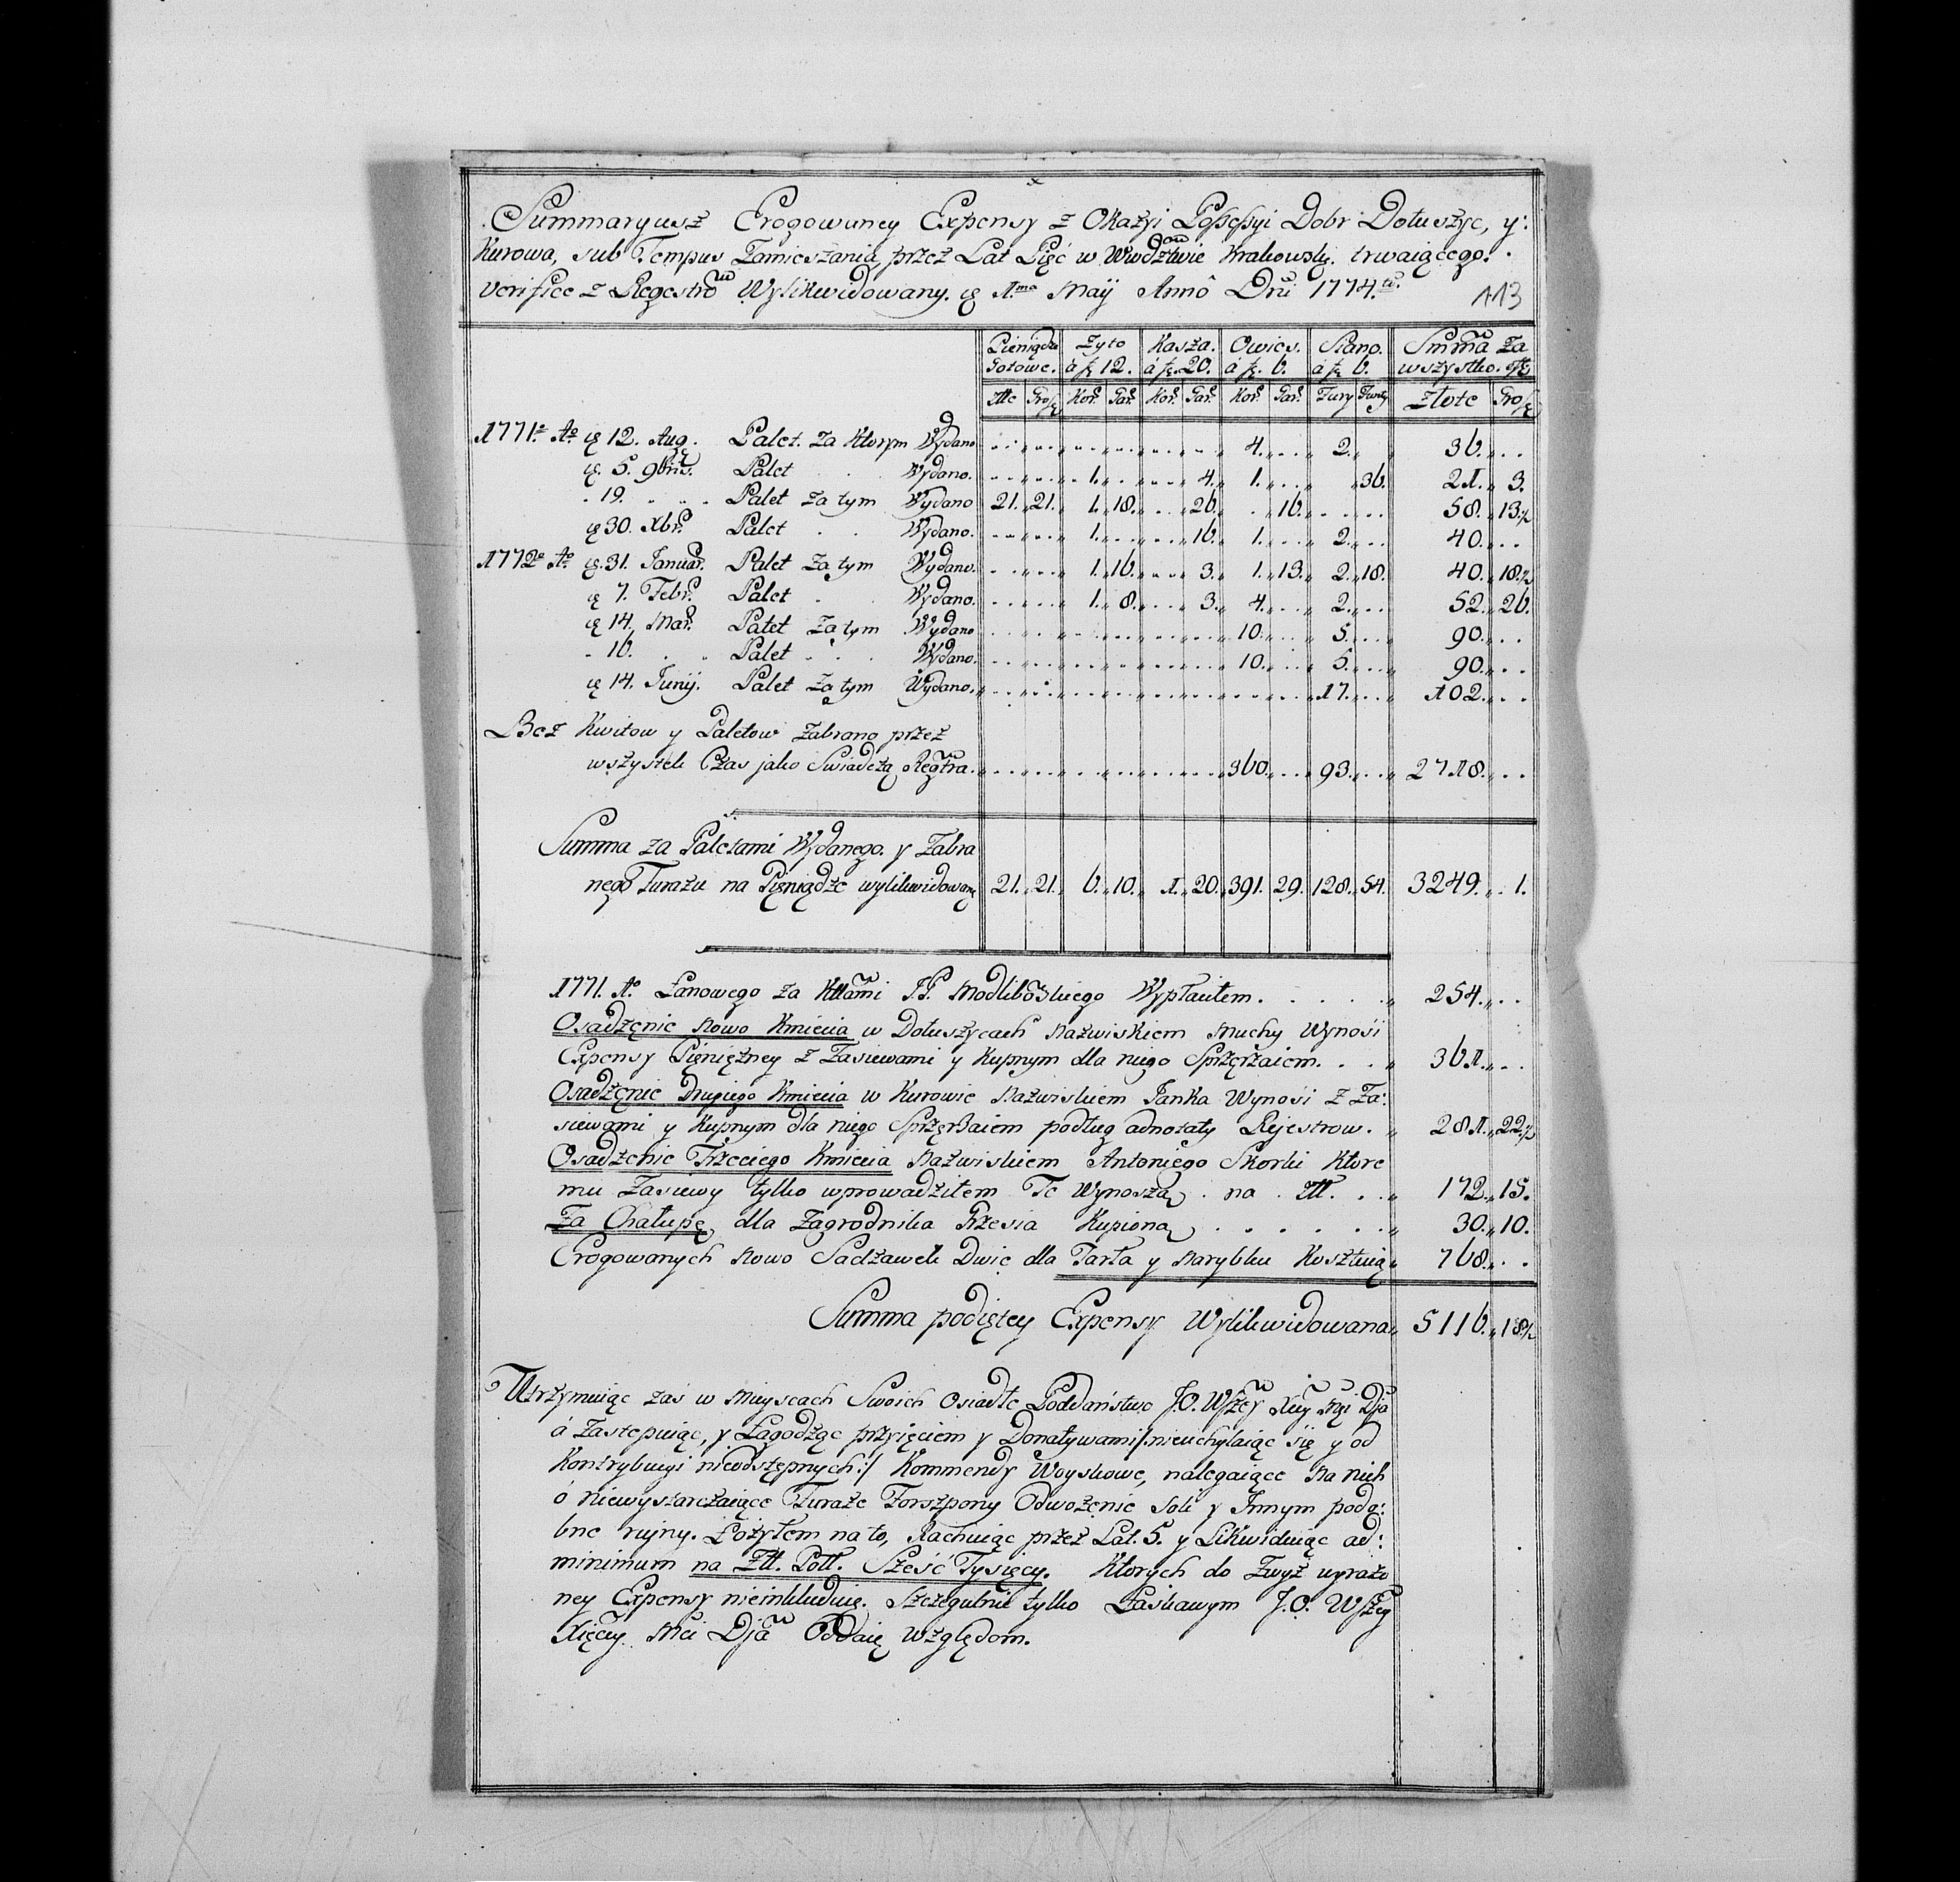 Summaryusz Erogowaney Expensy z Okazyi Possessyi Dobr Dołuszyc, y:
Kurowa, sub Tempus Zamieszania, przez Lat Pięć w Wwdztwie Krakowsk. trwaiącego.
Verifice z Regestrow Wylikwidowany. 1.ma Maij Anno Dni 1774.to
113
Pieniądze Zyto Kasza. Owies. Siano. Smma Za
Gotowe. á fz 12. á fz. 20. á fz. 6. á fz 6. wszystko.
Złłe Grosz Kor. Gar. Kor. Gar. Kor. Gar. Fury Funty Złote Grosz
1771. Ao. 12. Aug. Palet. za Ktorym Wydano 4. 2. 36.
5. 9bris. Palet Wydano. 1. 4. 1. 36. 21. 3.
19. Palet za tym Wydano 21. 21. 1. 18. 26. 16. 58. 13½
30. Xbr. Palet Wydano. 1. 16. 1. 2. 40.
1772. Ao. 31. Januar. Palet za tym Wydano. 1. 16. 3. 1. 13. 2. 18. 40. 18½
7. Febr. Palet Wydano. 1. 8. 3. 4. 2. 52. 26.
14. Mar. Palet za tym Wydano 10. 5. 90.
16. Palet Wydano. 10. 5. 90.
14. Junij. Palet za tym Wydano. 17. 102.
Bez Kwitow y Paletow zabrano przez
wszystek Czas jako Swiadczą Regtra. 360. 93. 2718.
Summa za Paletami Wydanego. y Zabra
nego Furażu na Pieniądze wylikwidowana 21. 21. 6. 10. 1. 20. 391. 29. 128. 54. 3249. 1.
1771. Ao. Łanowego za Kttami J.P. Modlibowskiego Wypłaciłem. 254.
Osadzenie nowo Kmiecia w Dołuszycach nazwiskiem Muchy Wynosi
Expensy Pieniężney z Zasiewami y Kupnym dla niego Sprzężaiem. 361.
Osadzenie Drugiego Kmiecia w Kurowie nazwiskiem Janka Wynosi z Za:
siewami y Kupnym dla niego Sprzężaiem podług adnotaty Rejestrow. 281. 22½
Osadzenie Trzeciego Kmiecia nazwiskiem Antoniego Skorki Ktore
mu Zasiewy tylko wprowadziłem Te Wynoszą na Złł. 172. 15.
Za Chałupę dla Zagrodnika Grzesia Kupioną 30. 10.
Erogowanych nowo Sadzawek Dwie dla Tarła y narybku Kosztuią 768.
Summa podiętey Expensy Wylikwidowana 5116. 18½
Utrzymuiąc zaś w Mieyscach Swoich Osiadłe Poddaństwo J.O. Wszey Xcey Mci Dja
á Zastepuiąc, y Łagodząc przyięciem y Donatywami /: nieuchylaiąc się y od
Kontrybucyi nieodstępnych :/ Kommendy Woyskowe, nalegaiące na nich
o niewystarczaiące Furaże Forszpony Odwożenie Soli y Innym podo:
bne ruiny. Łożyłem na to, Rachuiąc przez Lat. 5. y Likwiduiąc ad:
minimum na Złł. Poll. Sześć Tysięcy. Ktorych do Zwyż wyrażo
ney Expensy nieinkluduię. Szczegulnie tylko Łaskawym J.O. Wszey
Xięcey Mci Dja Oddaię względom.